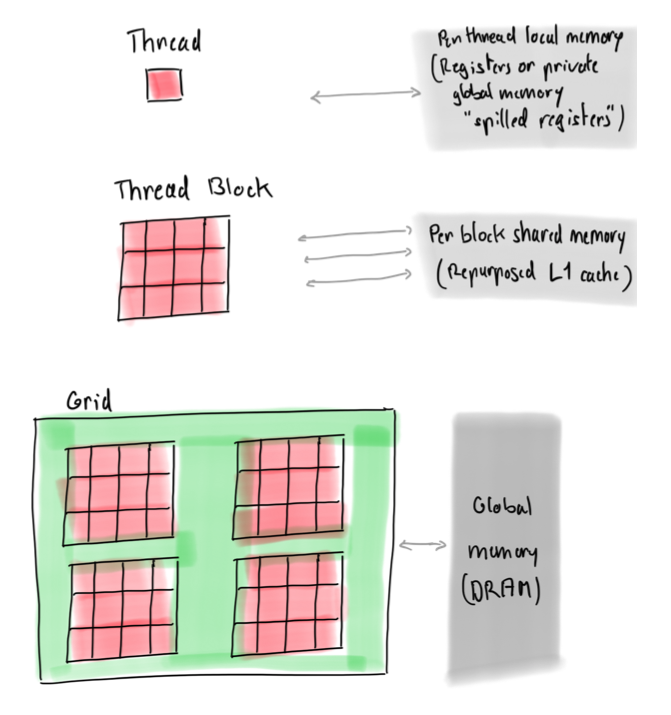 Thread
Per thread local memory
(Registers or private
global memory
"spilled registers")
Thread Block
Per block shared memory
(Repurposed L1 cache)
Grid
Global
memory
(DRAM)